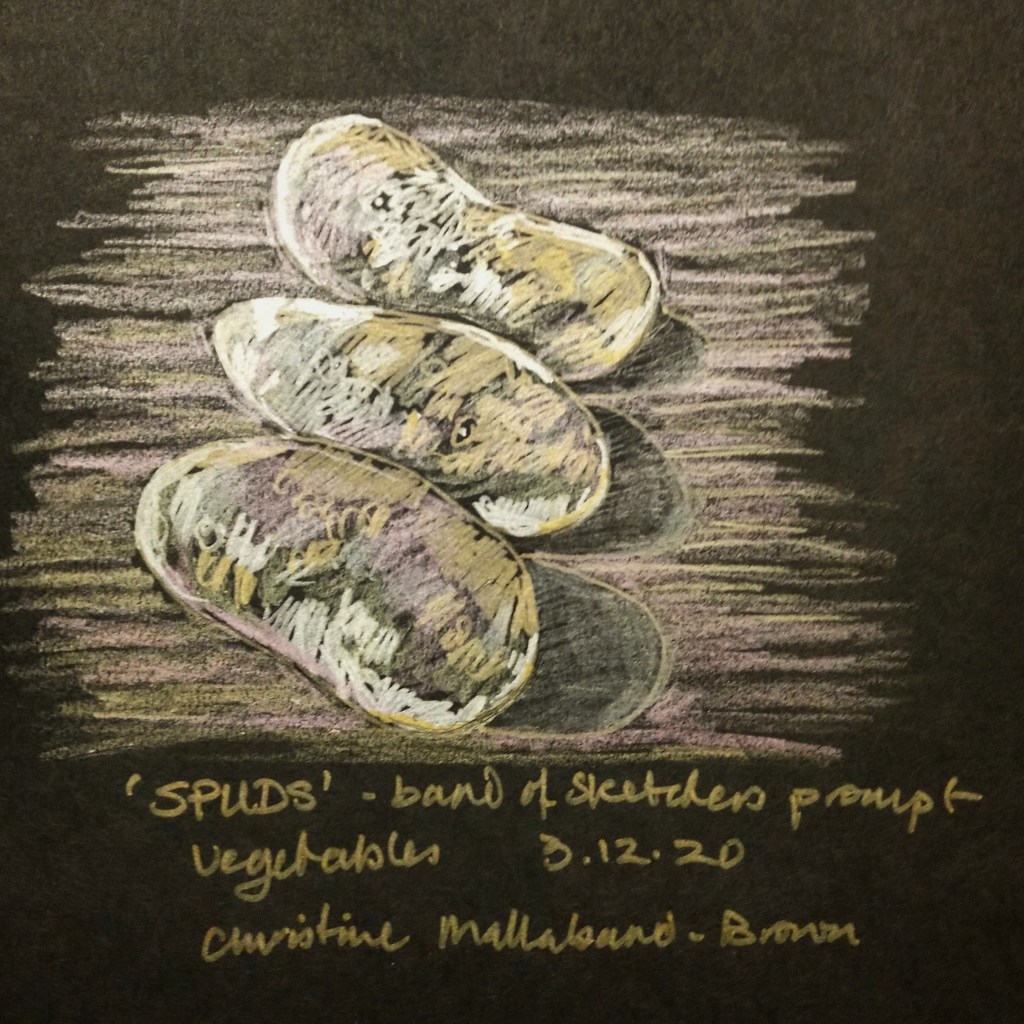 'SPUDS' - band of sketchers prompt
vegetables 3.12.20
Christine Mallaband-Brown